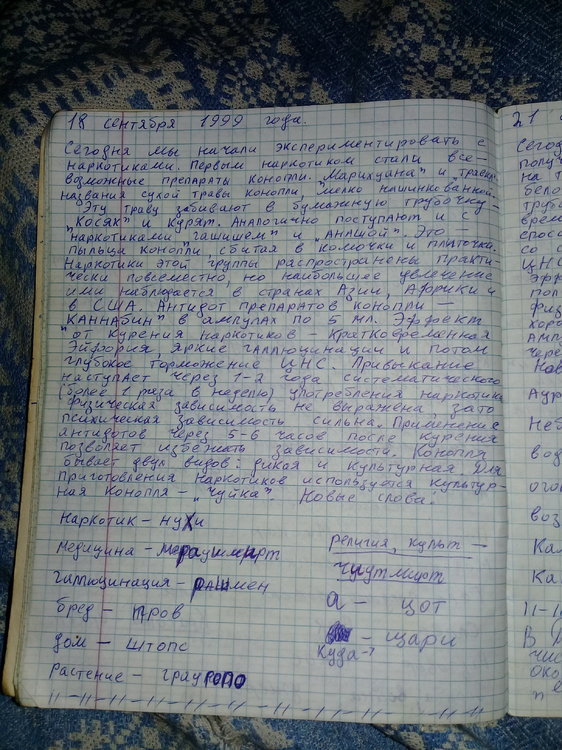 18 сентября 1999 года.
Сегодня мы начали экспериментировать с
наркотиками. Первым наркотиком стали все-
возможные препараты конопли. "Марихуана" и
названия сухой травы конопли, мелко нашинкованной.
Эту траву забивают в бумажную трубочку —
"Косяк" и курят. Аналогично поступают и с
"наркотиками "гашишем" и "АНАШОЙ". Это —
пыльца конопли, сбитая в комочки и плиточки.
Наркотики этой группы распространены практи-
чески повсеместно, но наибольшее увлечение
ими наблюдается в странах Азии, Африки и
в США. Антидот препаратов конопли —
"КАННАБИН" в ампулах по 5 мл. Эффект
"от курения наркотиков — кратковременная
Эйфория, яркие галлюцинации и потом
глубокое торможение ЦНС. Привыкание
наступает через 1-2 года систематического
(более 1 раза в неделю) употребления наркотика
Физическая зависимость не выражена, зато
психическая зависимость сильна. Применение
антидотов через 5-6 часов после курения
позволяет избежать зависимости. Конопля
бывает двух видов: дикая и культурная. Для
Приготовления наркотиков используются культур-
ная конопля — "чуйка". Новые слова.
Наркотик — нухи
Медицина —
Галлюцинация — рашмен
бред — тров
дом — штопс
растение — грауропо
религия, культ —
чудтмирт
а — цот
— щари
Куда-?
11-11-11-11-11-11-11-11-11-11-11-11-11
21
Сегод
полу
на т
бело
трубо
врем
спосо
со с
ЦНС
Эфф
пол
физ
хоро
Амп
чере
Нов
Аур
Неб
вод
ого
воз
Ка
Ка
11-1
В
чис
око